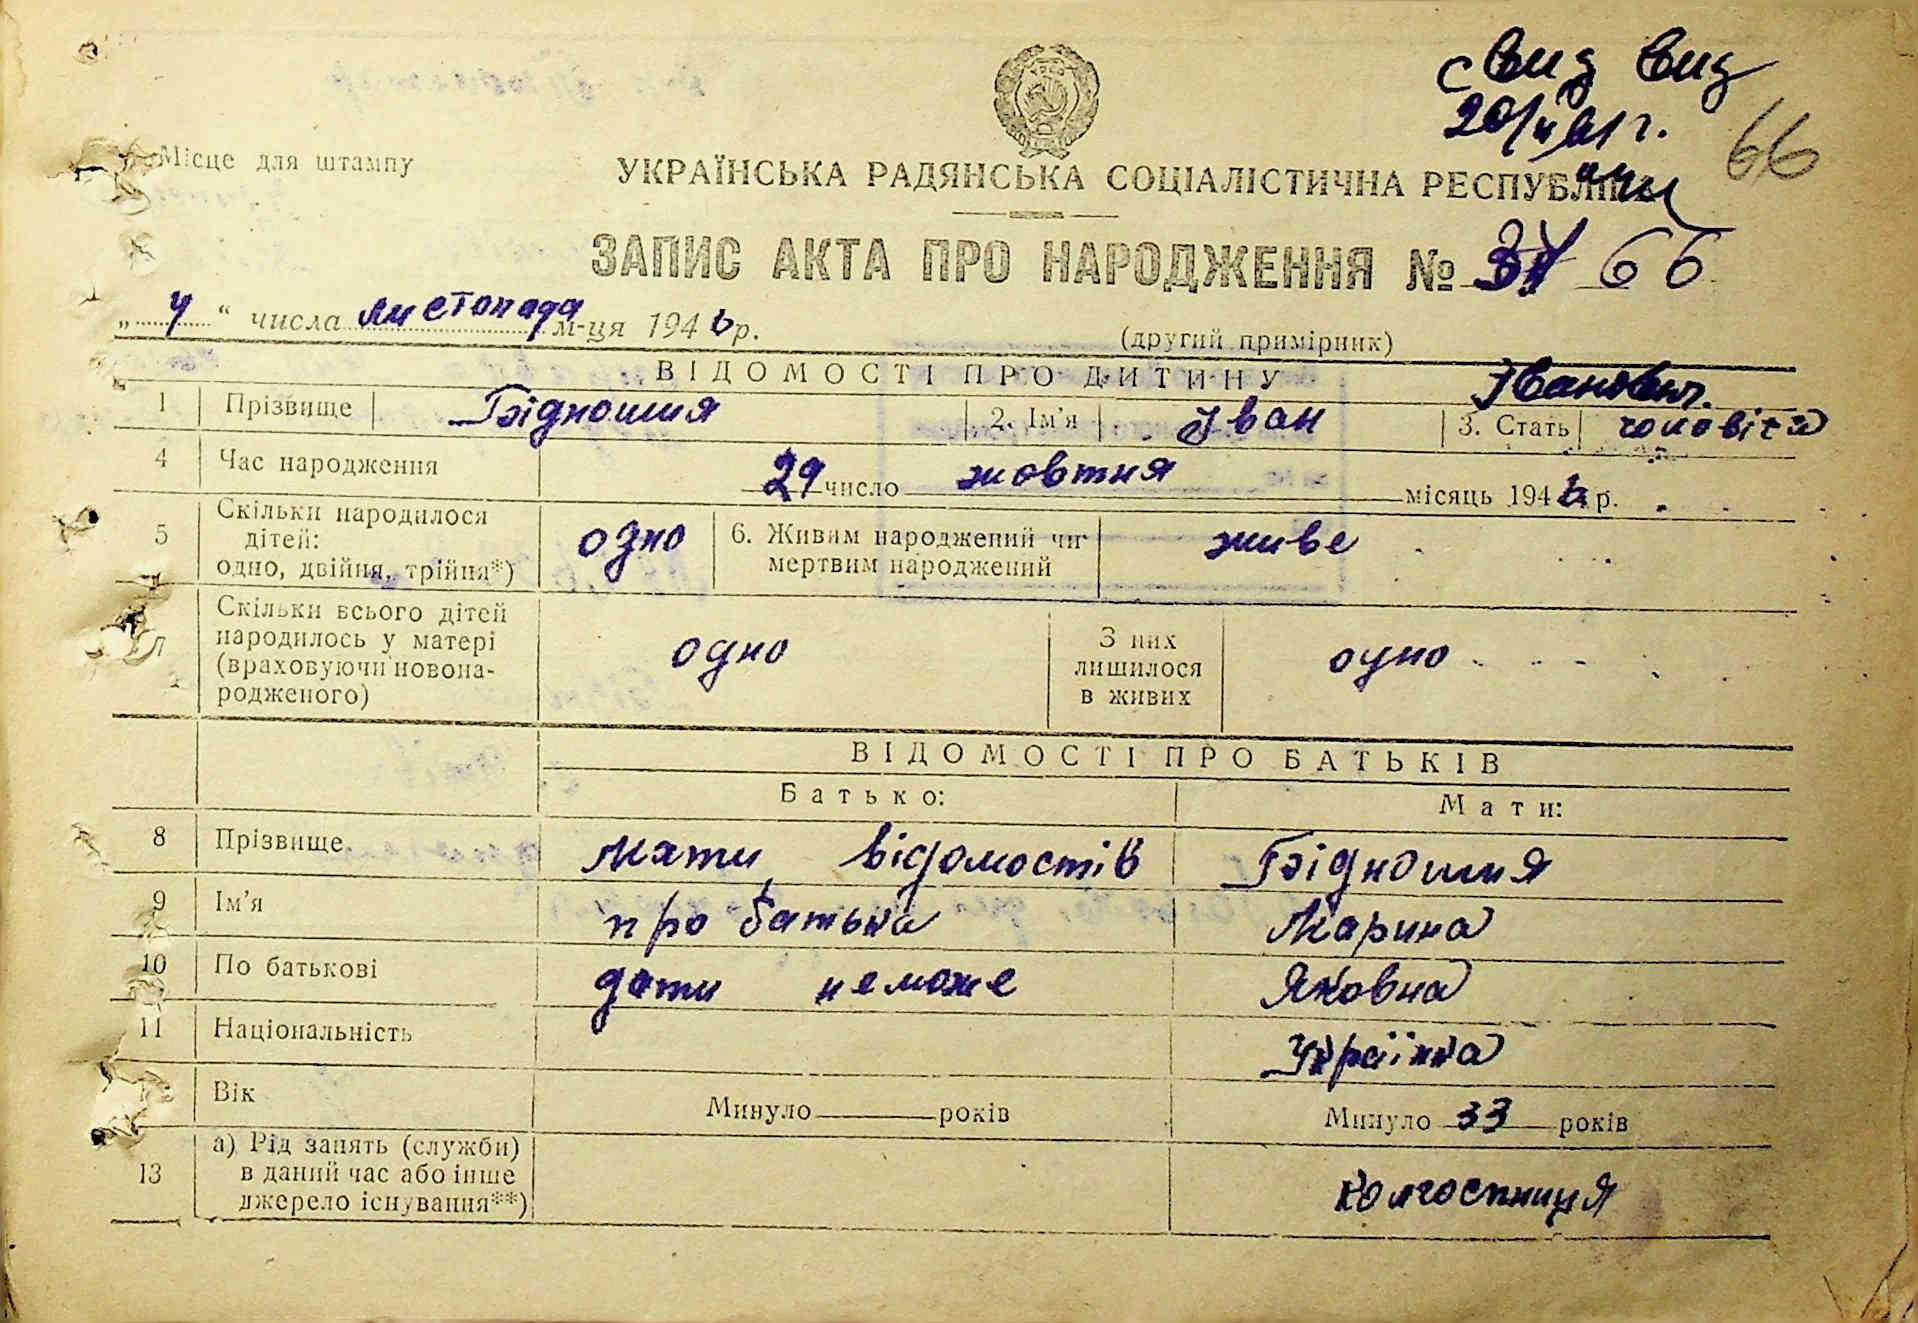 с вид вид
20/V 61 г.
66
Місце для штампу
УКРАЇНСЬКА РАДЯНСЬКА СОЦІАЛІСТИЧНА РЕСПУБЛІКА
ЗАПИС АКТА ПРО НАРОДЖЕННЯ № 66
„ 4 “ числа листопада м-ця 1946 р.
(другий примірник)
ВІДОМОСТІ ПРО ДИТИНУ
Іванович.
1 Прізвище Бідношия 2. Ім'я Іван 3. Стать чоловіча
4 Час народження 29 число жовтня місяць 1946 р.
5 Скільки народилося дітей: одно, двійня, трійня*) одно 6. Живим народжений чи мертвим народжений живе
7 Скільки всього дітей народилось у матері (враховуючи новонародженого) одно З них лишилося в живих одно
ВІДОМОСТІ ПРО БАТЬКІВ
Батько: Мати:
8 Прізвище мати відомостів Бідношия
9 Ім'я про батька Марина
10 По батькові дати неможе Яковна
11 Національність Українка
Вік Минуло років Минуло 33 років
13 а) Рід занять (служби) в даний час або інше джерело існування**) колгоспниця